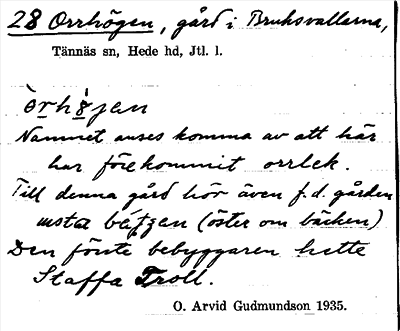 28 Orrhögen, gård i Bruksvallarna,
Tännäs sn, Hede hd, Jtl. l.
Namnet anses komma av att här
har förekommit orrlek.
Till denna gård hör även f.d. gården
(öster om bäcken)
Den förste bebyggaren hette
Staffa Troll.
O. Arvid Gudmundson 1935.